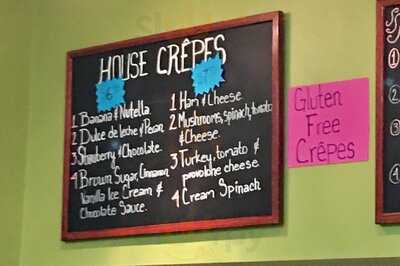 HOUSE CRÊPES
6
7
1 Banana & Nutella
2 Dulce de leche & Pecan
3 Strawberry & Chocolate
4 Brown Sugar, Cinnamon
Vanilla Ice Cream &
Chocolate Sauce.
1 Ham & Cheese
2 Mushrooms, spinach, tomato
& Cheese.
3 Turkey, tomato &
provolone cheese
4 Cream Spinach
Gluten
Free
Crêpes
1
2
3
4